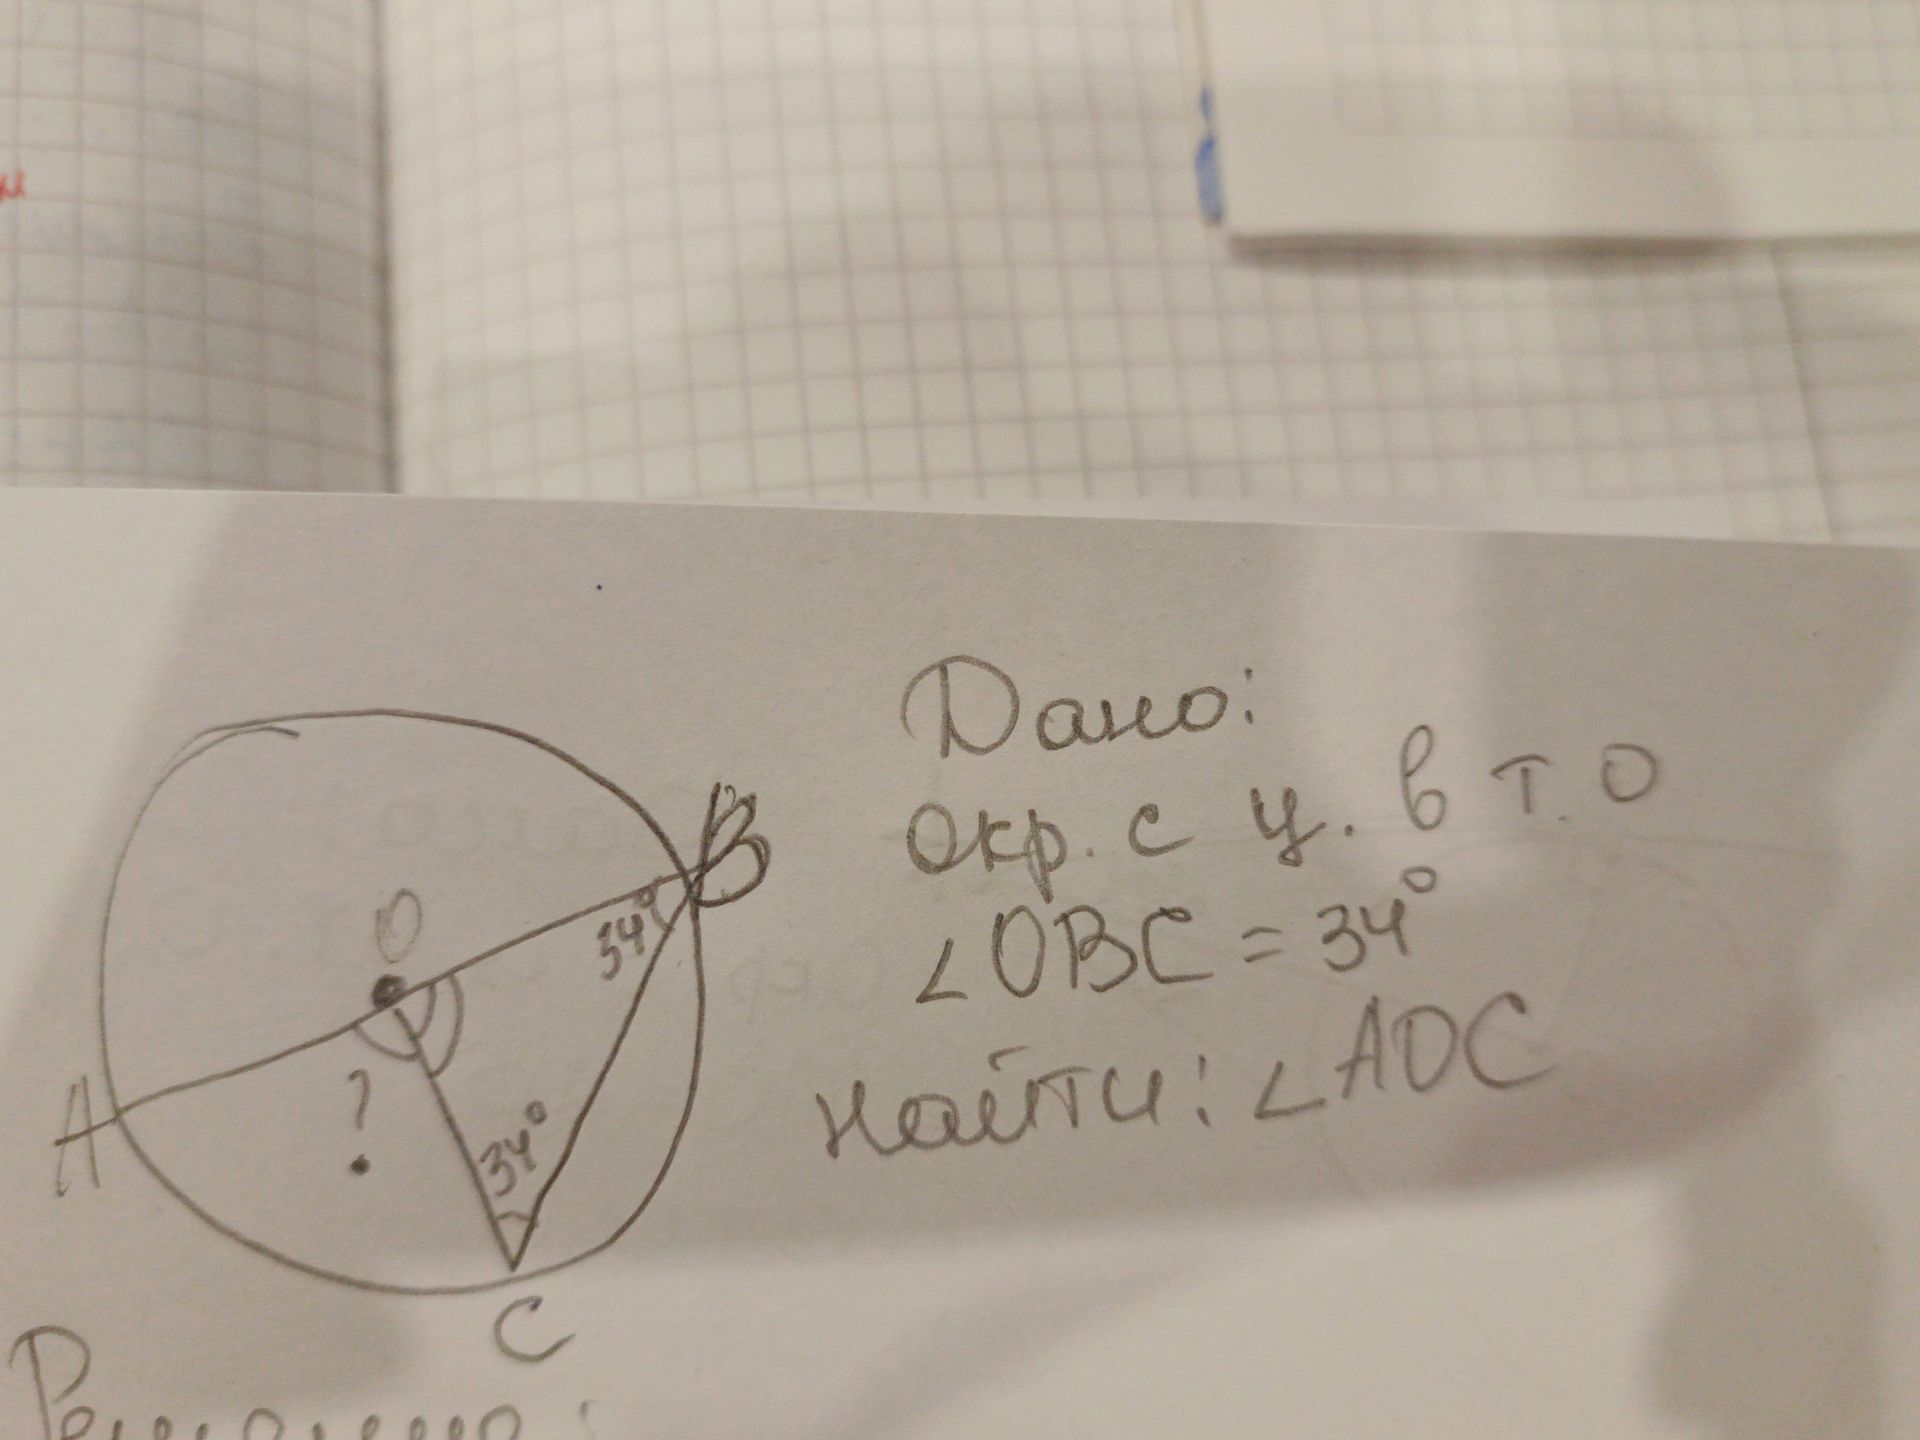 Дано:
Окр. с ц. в т. О
∠OBC = 34°
Найти: ∠AOC
B
O
34°
A
?
34°
C
Решение: